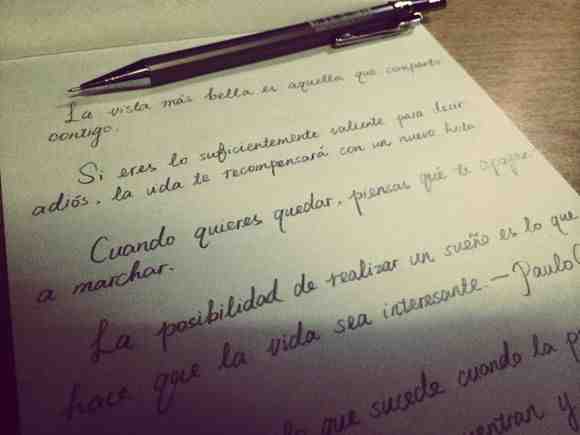 La vista más bella es aquella que comparto
contigo.
Si eres lo suficientemente valiente para decir
adiós, la vida te recompensará con un nuevo hola
Cuando quieres quedar, piensas qué te
a marchar.
La posibilidad de realizar un sueño es lo que
hace que la vida sea interesante. — Paulo C
lo que sucede cuando la p
entran y